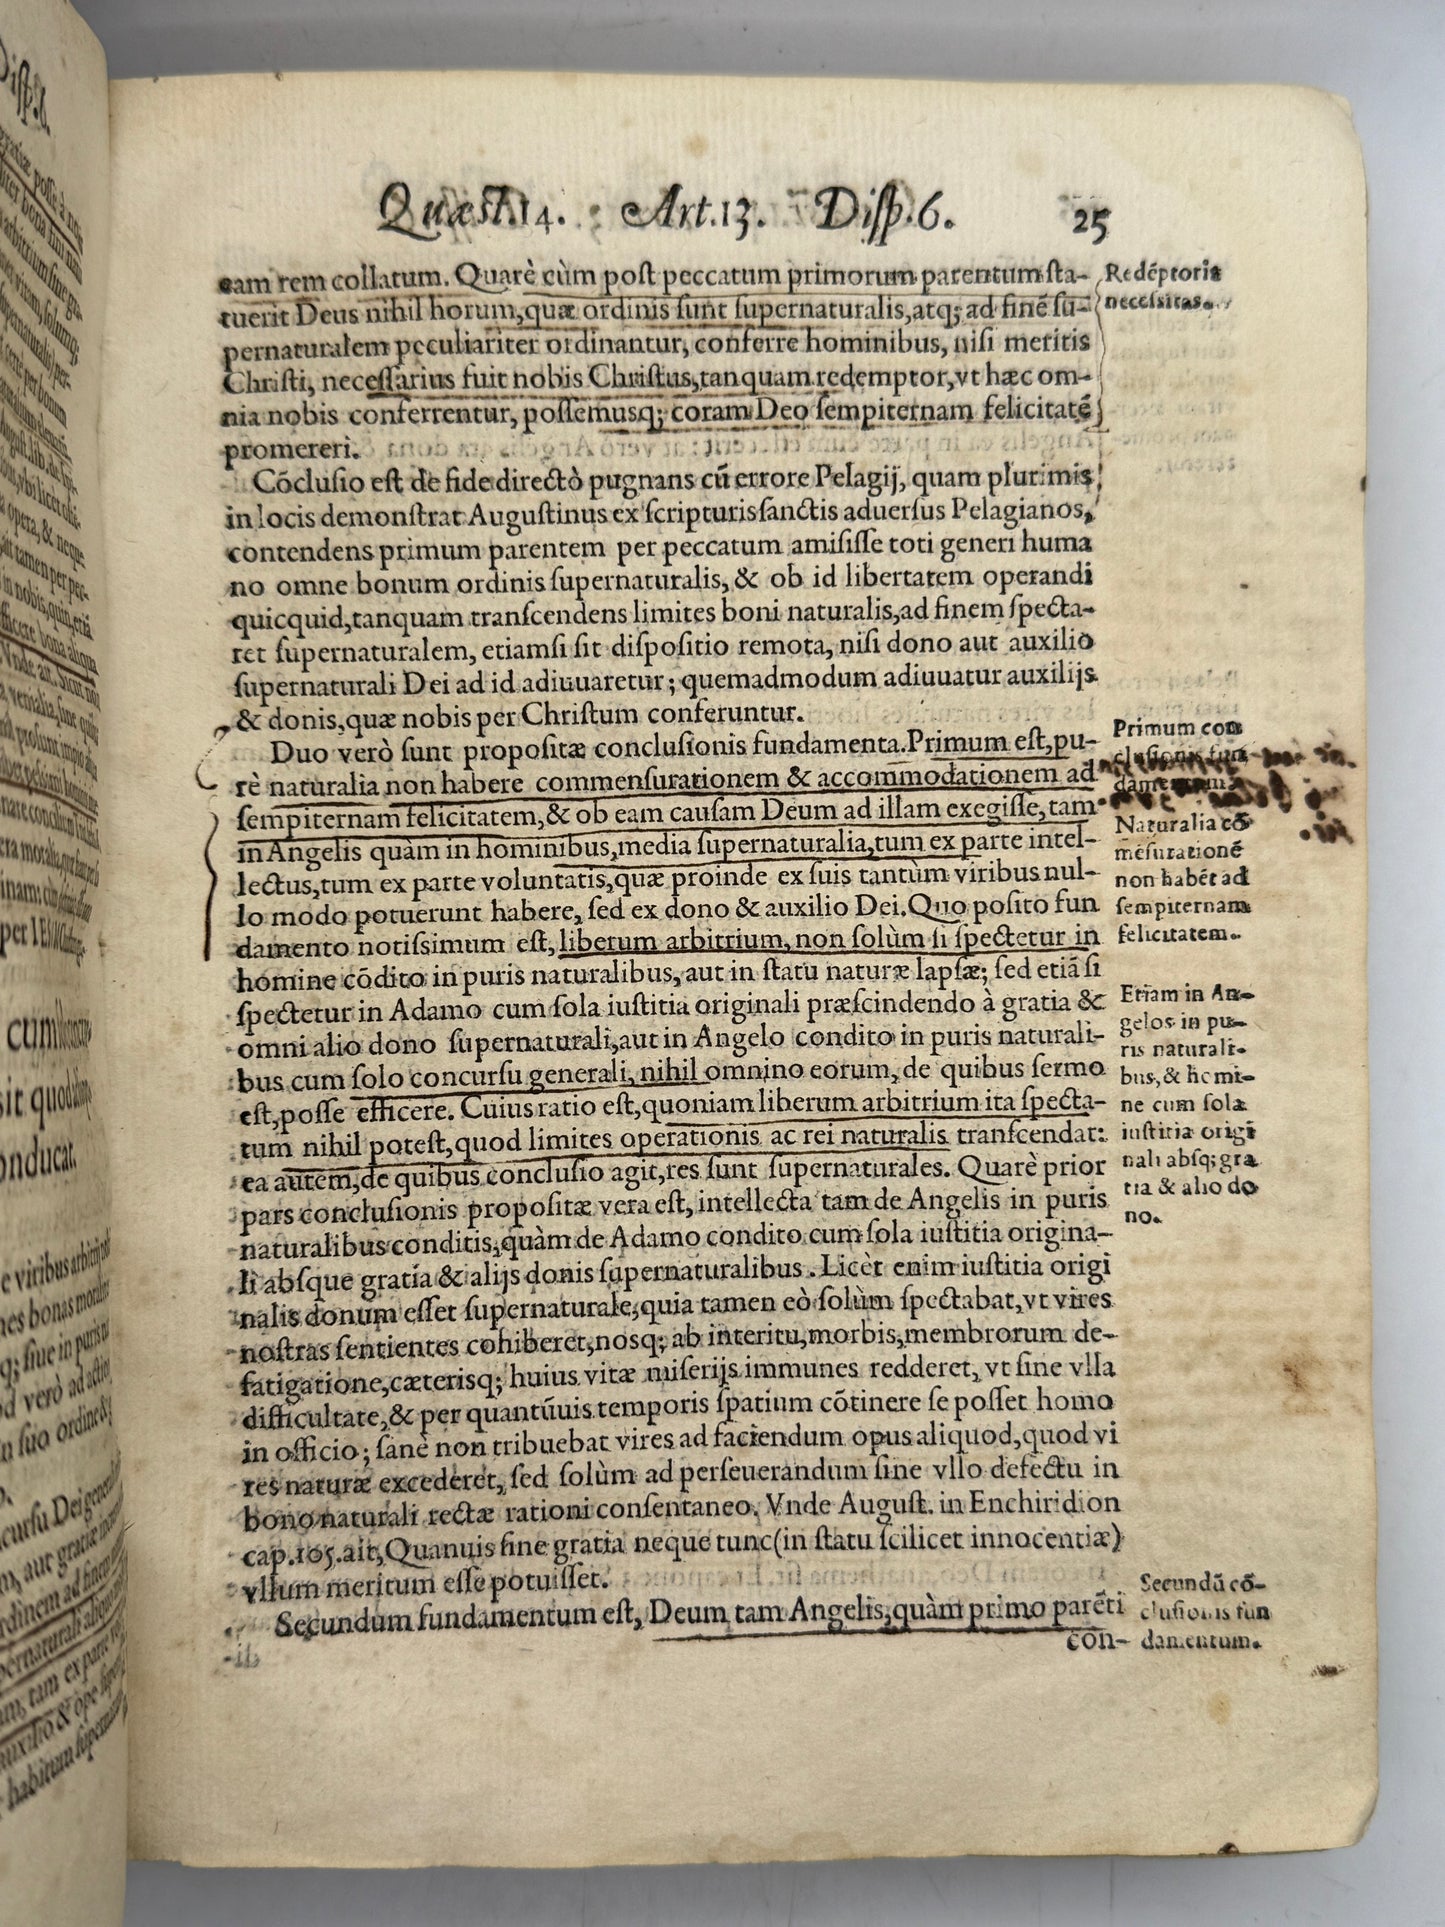 Quæst.14. Art.13. Disp.6. 25
eam rem collatum. Quarè cùm post peccatum primorum parentum sta-
tuerit Deus nihil horum, quæ ordinis sunt supernaturalis, atq; ad finē su-
pernaturalem peculiariter ordinantur, conferre hominibus, nisi meritis
Christi, necessarius fuit nobis Christus, tanquam redemptor, vt hæc om-
nia nobis conferrentur, possemusq; coram Deo sempiternam felicitatē
promereri.
Redēptoris
necessitas.
Cōclusio est de fide directò pugnans cū errore Pelagij, quam plurimis
in locis demonstrat Augustinus ex scripturis sanctis aduersus Pelagianos,
contendens primum parentem per peccatum amisisse toti generi huma
no omne bonum ordinis supernaturalis, & ob id libertatem operandi
quicquid, tanquam transcendens limites boni naturalis, ad finem specta-
ret supernaturalem, etiamsi sit dispositio remota, nisi dono aut auxilio
supernaturali Dei ad id adiuuaretur; quemadmodum adiuuatur auxilijs
& donis, quæ nobis per Christum conferuntur.
Duo verò sunt propositæ conclusionis fundamenta. Primum est, pu-
rè naturalia non habere commensurationem & accommodationem ad
sempiternam felicitatem, & ob eam causam Deum ad illam exegisse, tam
in Angelis quàm in hominibus, media supernaturalia, tum ex parte intel-
lectus, tum ex parte voluntatis, quæ proinde ex suis tantùm viribus nul-
lo modo potuerunt habere, sed ex dono & auxilio Dei. Quo posito fun
damento notissimum est, liberum arbitrium, non solùm si spectetur in
homine cōdito in puris naturalibus, aut in statu naturæ lapsæ; sed etiā si
spectetur in Adamo cum sola iustitia originali præscindendo à gratia &
omni alio dono supernaturali, aut in Angelo condito in puris naturali-
bus cum solo concursu generali, nihil omnino eorum, de quibus sermo
est, posse efficere. Cuius ratio est, quoniam liberum arbitrium ita specta-
tum nihil potest, quod limites operationis ac rei naturalis transcendat:
ea autem, de quibus conclusio agit, res sunt supernaturales. Quarè prior
pars conclusionis propositæ vera est, intellecta tam de Angelis in puris
naturalibus conditis, quàm de Adamo condito cum sola iustitia origina-
li absque gratia & alijs donis supernaturalibus. Licèt enim iustitia origi
nalis donum esset supernaturale, quia tamen eò solùm spectabat, vt vires
nostras sentientes cohiberet, nosq; ab interitu, morbis, membrorum de-
fatigatione, cæterisq; huius vitæ miserijs immunes redderet, vt sine vlla
difficultate, & per quantūuis temporis spatium cōtinere se posset homo
in officio; sanè non tribuebat vires ad faciendum opus aliquod, quod vi
res naturæ excederet, sed solùm ad perseuerandum sine vllo defectu in
bono naturali rectæ rationi consentaneo. Vnde August. in Enchiridion
cap.105. ait, Quanuis sine gratia neque tunc (in statu scilicet innocentiæ)
vllum meritum esse potuisset.
Secundum fundamentum est, Deum tam Angelis, quàm primo parēti
con-
Primum con
clusionis fun
damentum.
Naturalia cō
mēsurationē
non habēt ad
sempiternam
felicitatem.
Etiam in An-
gelos in pu-
ris naturali-
bus, & homi-
ne cum sola
iustitia origi
nali absq; gra
tia & alio do
no.
Secundū cō-
clusionis fun
damentum.